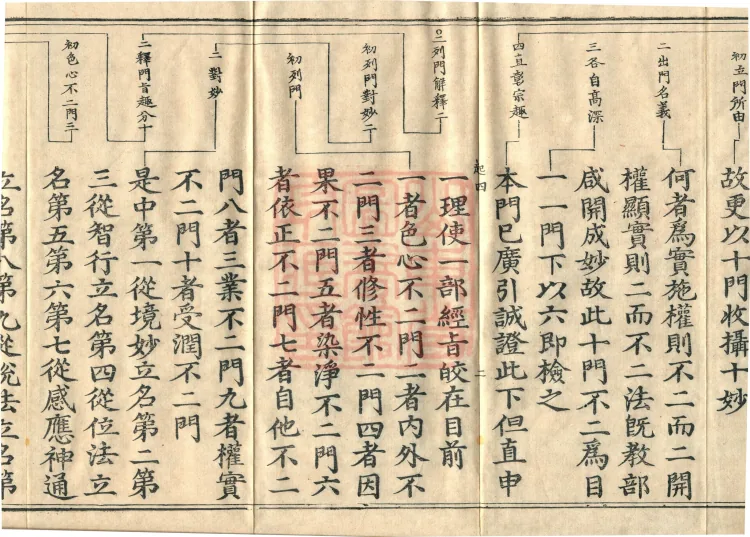 初立門所由
二出門名義
三各自高深
四直彰宗趣
○二列門解釋二
初列門對妙二
初列門
二對妙
二釋門旨趣分十
初色心不二門三
故更以十門收攝十妙
何者爲實施權則不二而二開
權顯實則二而不二法旣教部
咸開成妙故此十門不二爲目
一一門下以六即檢之
本門已廣引誠證此下但直申
起四 二
一理使一部經旨皎在目前
一者色心不二門二者内外不
二門三者修性不二門四者因
果不二門五者染淨不二門六
者依正不二門七者自他不二
門八者三業不二門九者權實
不二門十者受潤不二門
是中第一從境妙立名第二第
三從智行立名第四從位法立
名第五第六第七從感應神通
立名第八第九從說法立名第